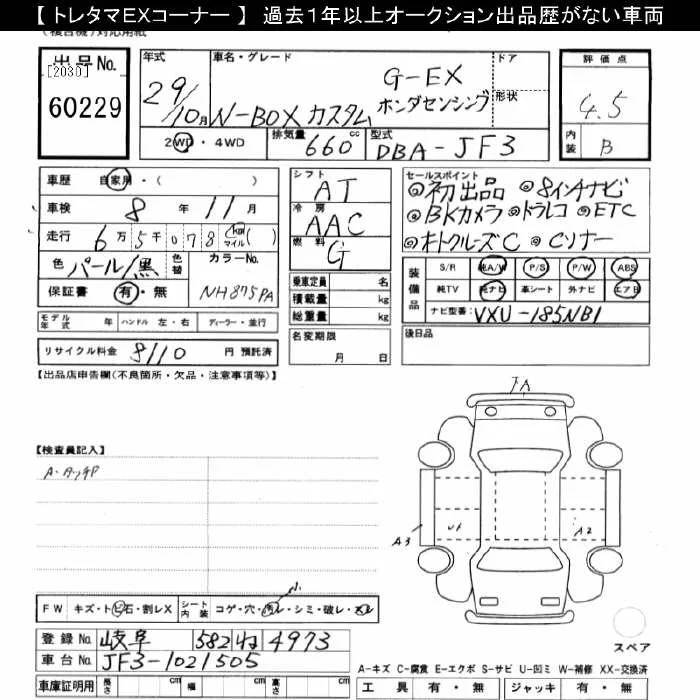 【 トレタマEXコーナー 】 過去1年以上オークション出品歴がない車両
出品No.
[2030]
60229
年式
29/10月
車名・グレード
N-BOX カスタム
G-EX
ホンダセンシング
ドア
形状
2WD ・ 4WD
排気量
660 cc
型式
DBA-JF3
評価点
4.5
内装
B
車歴 自家用・( )
車検 8 年 11 月
走行 6万5千078 km マイル ( )
色 パール/黒
色替
カラーNo.
NH875PA
保証書 有・無
モデル年式 年 ハンドル 左・右 ディーラー・並行
リサイクル料金 8110 円 預託済
シフト
AT
冷房
AAC
燃料
G
乗車定員 名
積載量 kg
総重量 kg
名変期限
月 日
セールスポイント
◎初出品 ◎8インチナビ
◎BKカメラ ◎ドラレコ ◎ETC
◎オートクルーズC ◎Cソナー
装備品
S/R 純A/W P/S P/W ABS
純TV 純ナビ 革シート 外ナビ エアB
ナビ型番: VXU-185NBi
後日品
【出品店申告欄(不良箇所・欠品・注意事項等)】
【検査員記入】
A・タッチP
FA
A3
U1
A2
FW キズ・トビ石・割レX
シート内装 コゲ・穴・汚レ・シミ・破レ・スレ
登録No. 岐阜 582 ね 4973
車台No. JF3-1021505
車庫証明用 長さ cm 幅 cm 高さ cm
スペア
A-キズ C-腐食 E-エクボ S-サビ U-凹ミ W-補修 XX-交換済
工具 有・無 ジャッキ 有・無